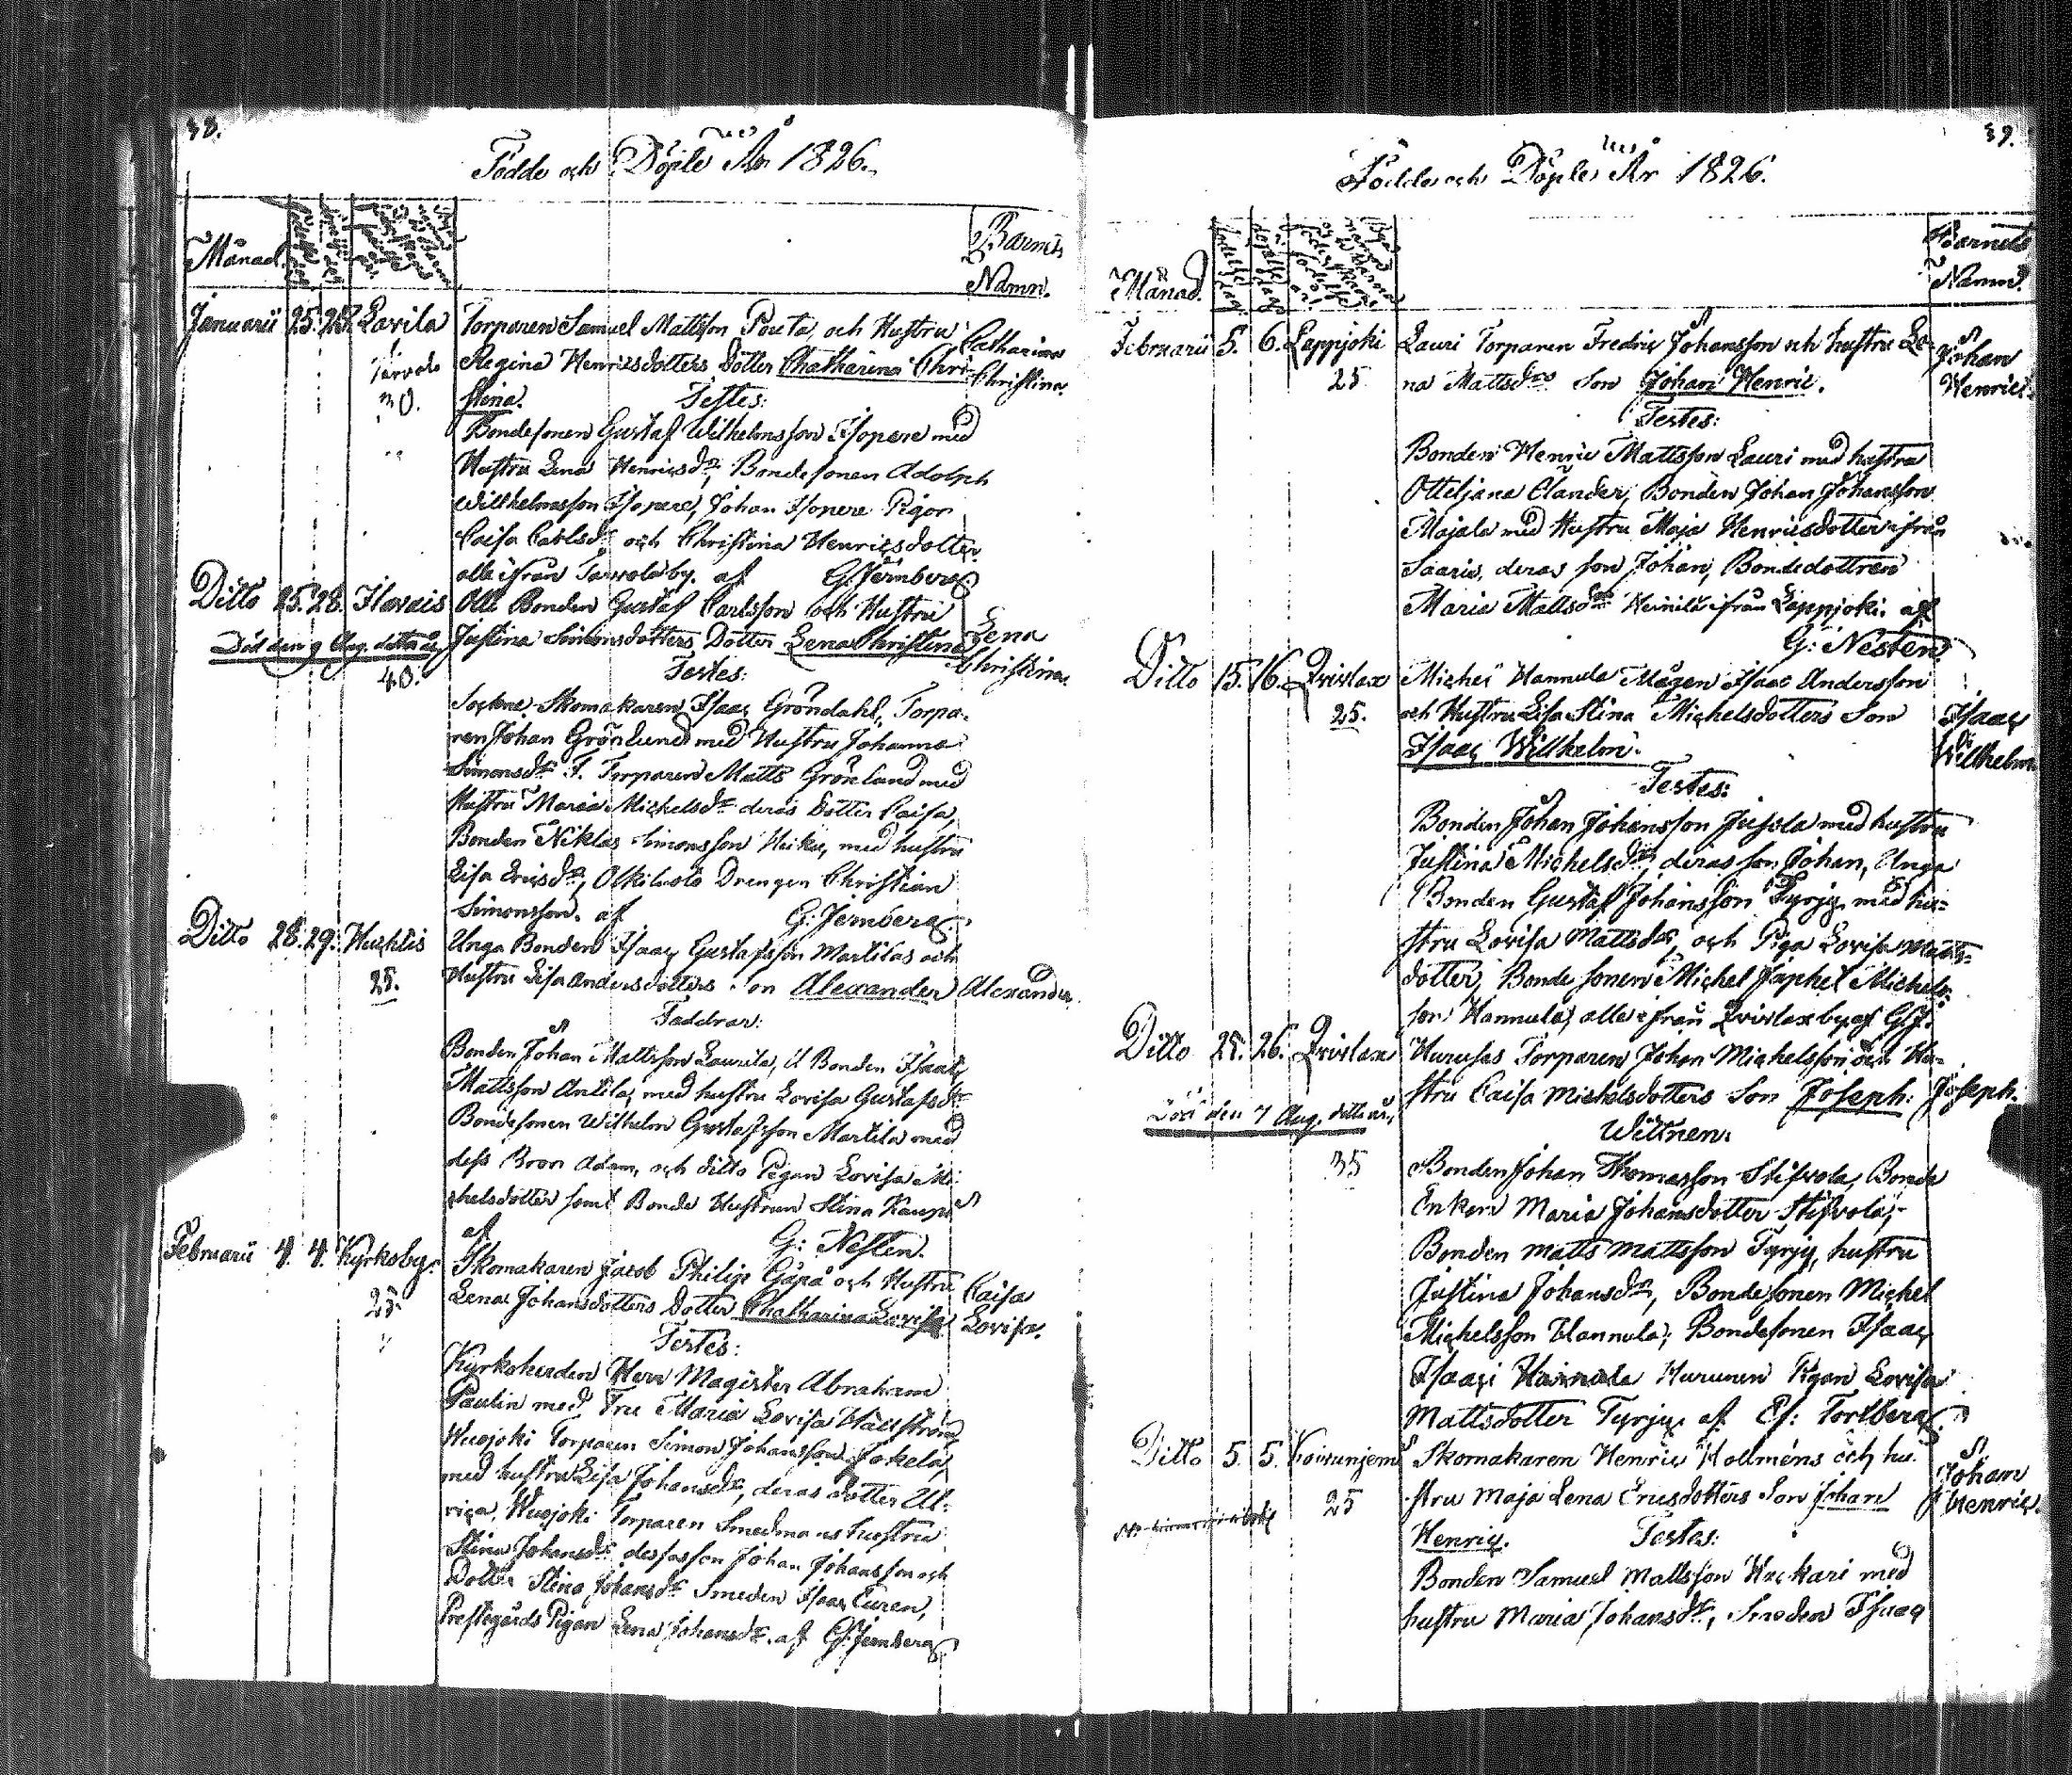 38.
Födde och Döpte År 1826.
Månad.
Barnets
Namn.
Januarii 25. 28. Lavila Torparen Samuel Mattsson Pouta, och Hustru Catharina
Regina Henricsdotters Dotter Chatharina Chri- Christina.
30. stina. Testes:
Bondesonen Gustaf Wilhelmsson Isopere med
Hustru Lena Henricsdr, Bondesonen Adolph
Willhelmsson Isopere, Johan Isopere Pigor
Caisa Carlsdr och Christina Henricsdotter
alla ifrån by. af G: Jernberg.
Ditto 25. 28. Ilavais Olli Bonden Gustaf Carlsson och Hustru Lena
Död den 9 Aug. detta år Justina Simonsdotters Dotter Lena Christina Christina.
40. Testes:
Sockne Skomakaren Isaac Gröndahl, Torpa-
ren Johan Grönlund med Hustru Johanna
Simonsdr T. Torparen Matts Grönlund med
Hustru Maria Michelsdr deras Dotter Caisa,
Bonden Niklas Simonsson Heiku, med hustru
Lisa Ericsdr, Olkiluoto Drengen Christian
Simonsson. af G: Jernberg.
Ditto 28. 29. Huhtis Unga Bonden Isaac Gustafsson Martilas och
25. Hustru Lisa Andersdotters Son Alexander Alexander.
Faddrar:
Bonden Johan Mattsson Laurila, U Bonden Isaac
Mattsson Antila, med hustru Lovisa Gustafsdr
Bondesonen Wilhelm Gustafsson Martila med
dess Bror Adam, och ditto Pigan Lovisa Mi-
chelsdotter samt Bonde Hustrun Stina Kaupi
af G: Nesten.
Februarii 4. 4. Kyrkoby. Skomakaren Jacob Philip Gåpå och Hustru Caisa
25. Lena Johansdotters Dotter Chatharina Lovisa Lovisa.
Testes:
Kyrkoherden Herr Magister Abraham
Paulin med Fru Maria Lovisa Hällström
Wuojoki Torparen Simon Johansson Jokela,
med hustru Lisa Johansdr, deras dotter Ul-
rica, Wuojoki Torparen Smedmans hustru
Stina Johansdr dess son Johan Johansson och
Dotter Stina Johansdr Smeden Isaac Curen,
Prestegårds Pigan Lena Johansdr. af G: Jernberg
39.
Födde och Döpte År 1826.
Månad.
Barnets
Namn.
Februarii 5. 6. Lappjoki Lauri Torparen Fredric Johansson och hustru Le- Johan
25 na Mattsdrs Son Johan Henric. Henric.
Testes:
Bonden Henric Mattsson Lauri med hustru
Otteljana Clander, Bonden Johan Johansson
Majala med Hustru Maja Henricsdotter ifrån
Saaris, deras son Johan, Bondedottren
Maria Mattsdr Heinilä ifrån Lappjoki. af
G: Nesten
Ditto 15. 16. Qvivlax Michei Hannula Mågen Isaac Andersson
25. och Hustru Lisa Stina Michelsdotters Son Isaac
Isaac Willhelm. Wilhelm
Testes:
Bonden Johan Johansson Jusola med hustru
Justina Michelsdr, deras son Johan, Unga
Bonden Gustaf Johansson Tyrjy med hu-
stru Lovisa Mattsdr, och Piga Lovisa Matts-
dotter, Bonde sonen Michel Japhet Michels-
son Hannula, alla ifrån Qvivlax by af G. J.
Ditto 25. 26. Qvivlax Huruses Torparen Johan Michelsson och Hu-
stru Caisa Michelsdotters Son Joseph. Joseph.
Död den 7 Aug. detta år, Wittnen:
35 Bonden Johan Thomasson Stifvola, Bonde
Enkan Maria Johansdotter Stifvola,
Bonden Matts Mattsson Tyrjy, hustru
Justina Johansdr, Bondesonen Michel
Michelsson Hannula, Bondesonen Isaac
Isaaci Hannula Hurunen Pigan Lovisa
Mattsdotter Tyrjy. af Ef: Fortberg
Ditto 5. 5. Koivuniemi Skomakaren Henric Hollméns och hu- Johan
25 stru Maja Lena Ericsdotters Son Johan Henric.
Henric. Testes:
Bonden Samuel Mattsson Hackari med
hustru Maria Johansdr, Smeden Isaac